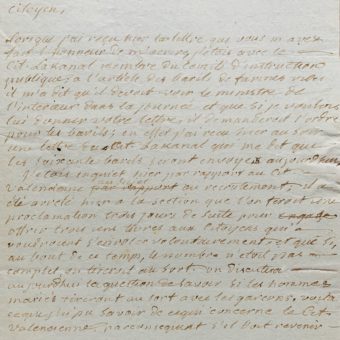 Citoyen,
Lorsque j'ai reçu hier la lettre que vous m'avez
fait l'honneur de m'ecrire, j'etois avec le
Cit. Lakanal membre du comité d'instruction
publique, a l'article des barils de farines
il m'a dit qu'il devoit voir le ministre de
l'interieur dans la journée et que si je voulois
lui donner votre lettre, il demanderoit l'ordre
pour les barils; en effet j'ai recu hier au soir
une lettre du Cit. Lakanal qui me dit que
les barils seront envoyés aujourdhui
J'etois inquiet hier par rapport au Cit.
Valencienne par rapport au recrutement, il
été arreté hier a la section que l'on feroit une
proclamation trois jours de suite pour engage
offrir trois cens livres aux Citoyens qui
voudroient s'enroler volontairement et que si,
au bout de ce temps, le nombre n'etoit pas
complet on tireroit au sort. on discutera
aujourdhui la question de savoir si les hommes
mariés tireront au sort avec les garcons, voila
ce que j'ai pu savoir de ce qui concerne le Cit.
Valencienne, par consequent s'il peut revenir